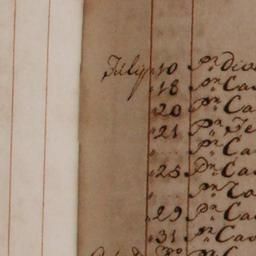 July 10 Pr Div
18 Pr Ca
20 Pr Ca
21 Pr Je
" Pr Ca
25 Pr Ca
" Pr To
29 Pr Ca
31 Pr Ca